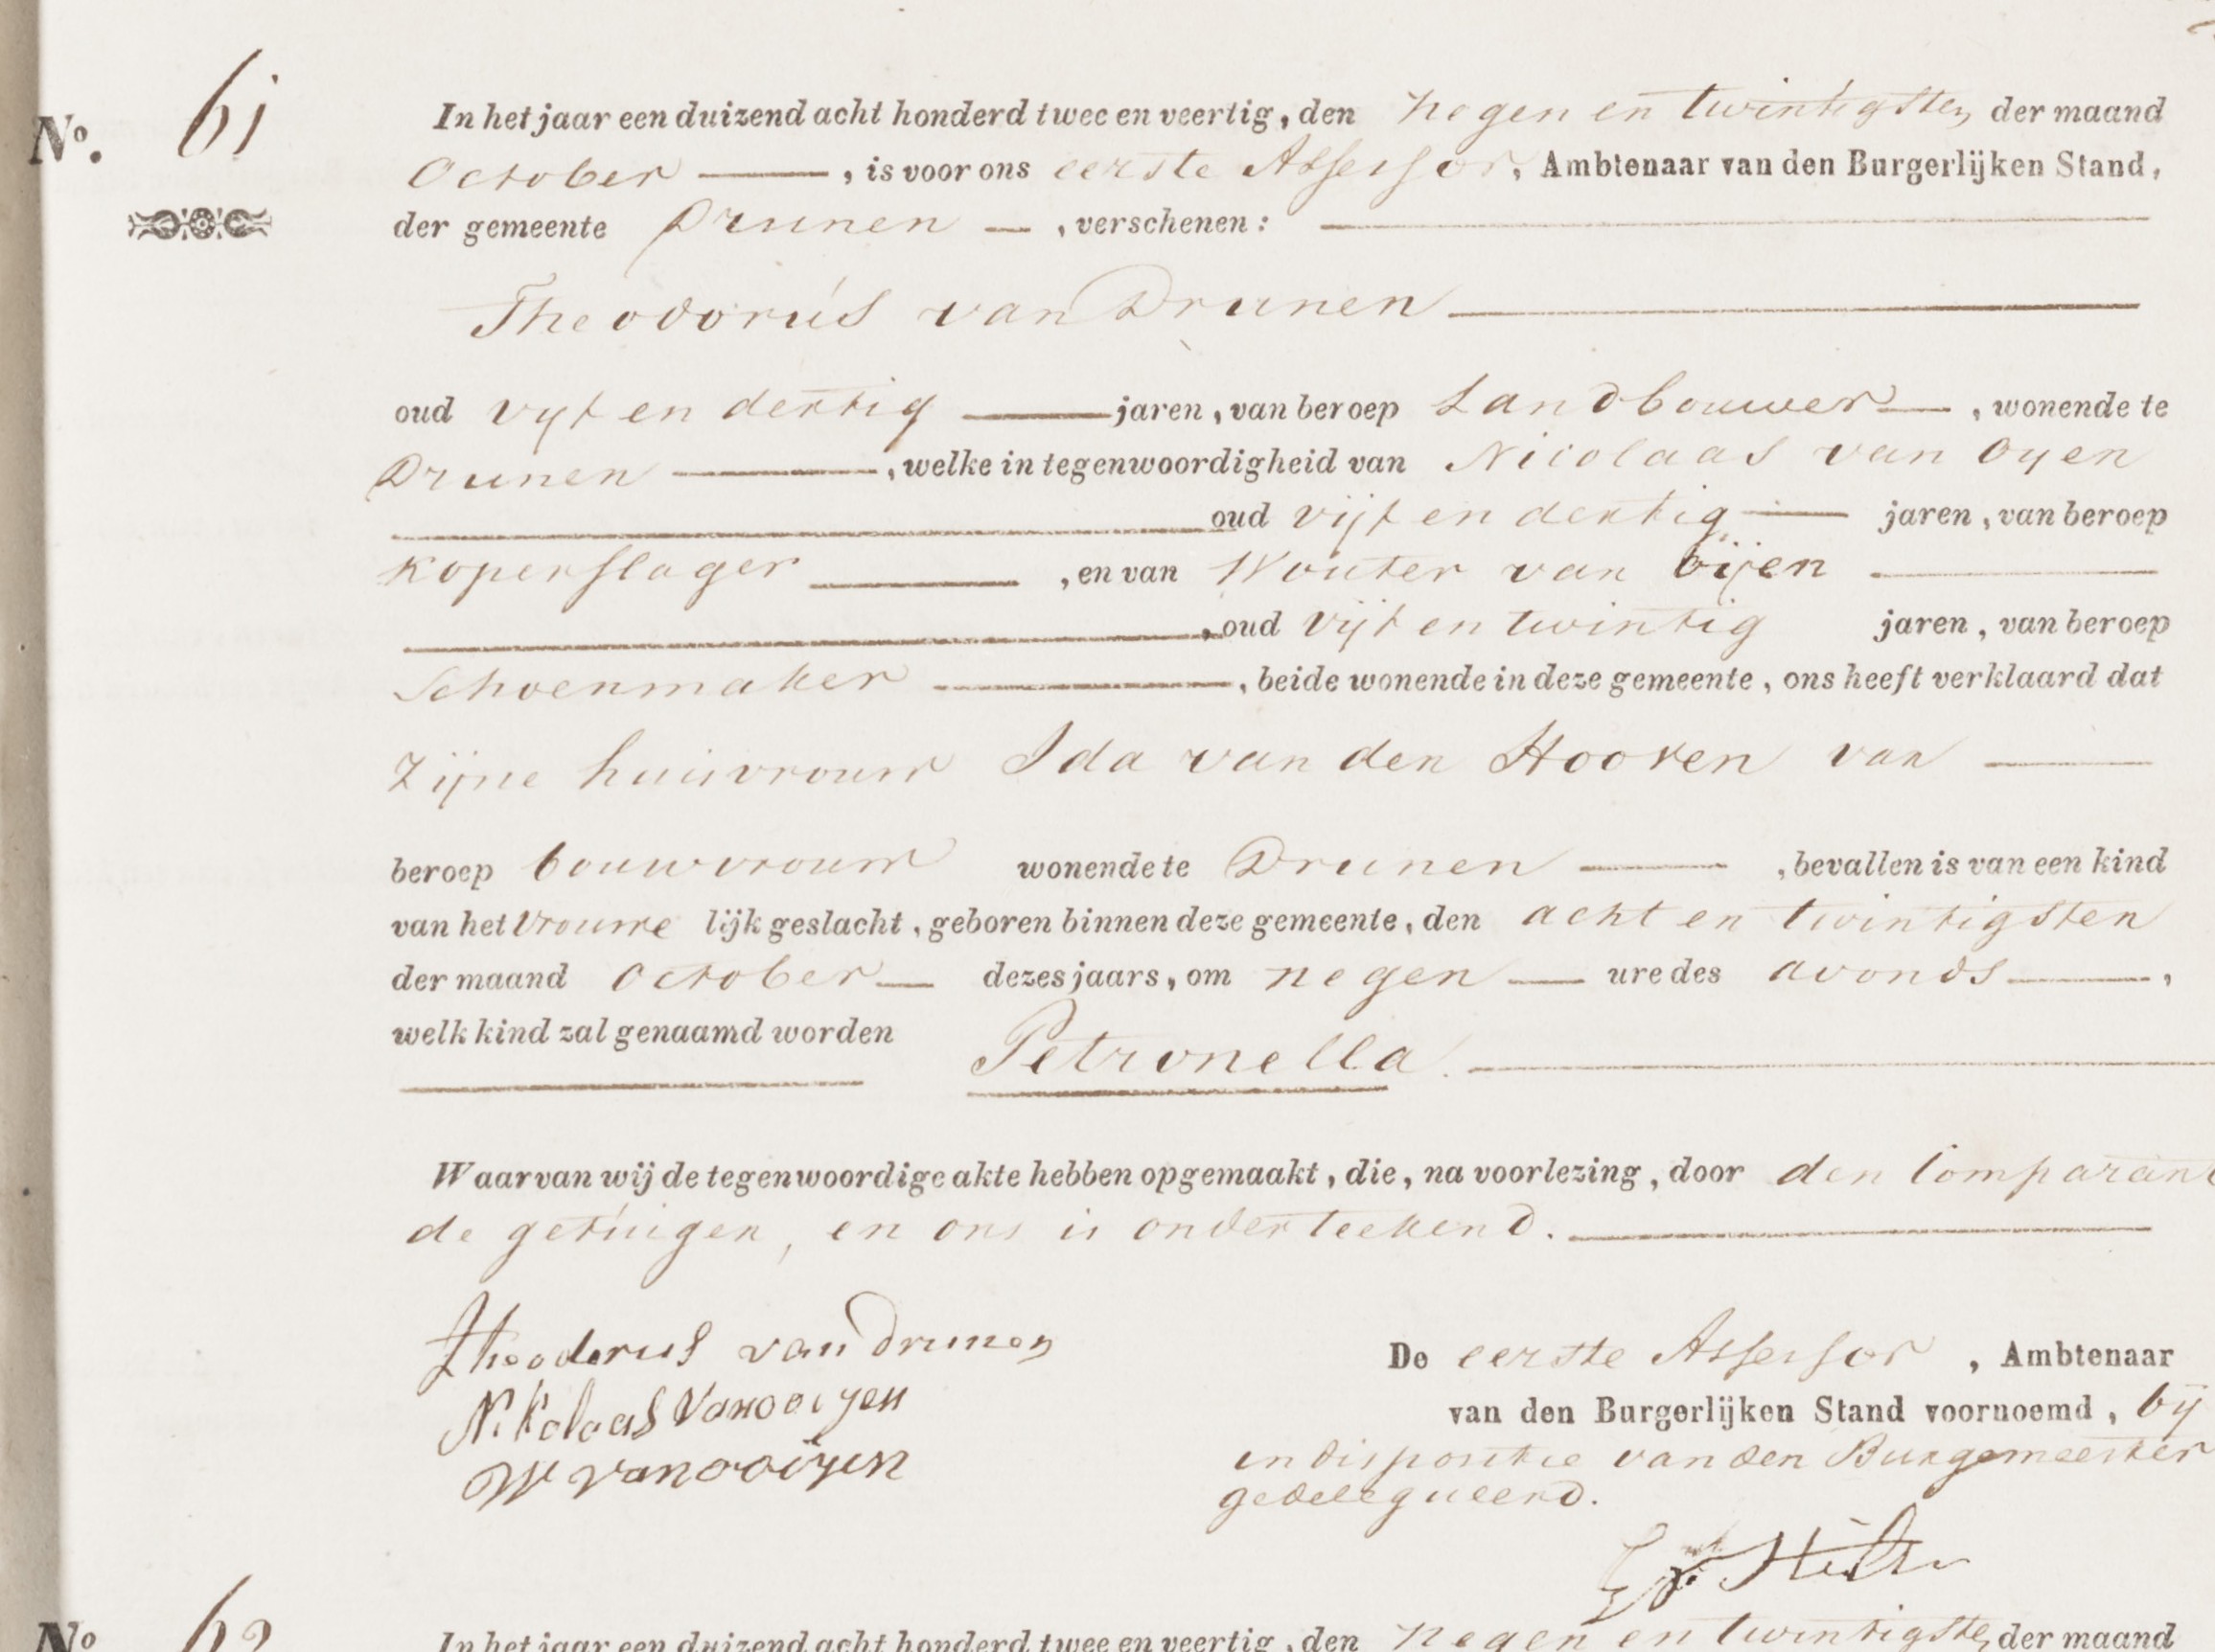 No. 61
In het jaar een duizend acht honderd twee en veertig, den negen en twintigsten der maand
October —, is voor ons eerste Assessor, Ambtenaar van den Burgerlijken Stand,
der gemeente Drunen —, verschenen: —
Theodorus van Drunen —
oud vyf en dertig — jaren, van beroep Landbouwer —, wonende te
Drunen —, welke in tegenwoordigheid van Nicolaas van Oyen
— oud vijf en dertig — jaren, van beroep
Koperslager —, en van Wouter van Oijen —
—, oud vijf en twintig jaren, van beroep
Schoenmaker —, beide wonende in deze gemeente, ons heeft verklaard dat
zijne huisvrouw Ida van den Hooven van —
beroep bouwvrouw wonende te Drunen —, bevallen is van een kind
van het vrouwelijk geslacht, geboren binnen deze gemeente, den acht en twintigsten
der maand October — dezes jaars, om negen — ure des avonds —,
welk kind zal genaamd worden Petronella. —
Waarvan wij de tegenwoordige akte hebben opgemaakt, die, na voorlezing, door den Comparant
de getuigen, en ons is onderteekend. —
Theodorus van Drunen
Nikolaas Van ooijen
W van ooijen
De eerste Assessor, Ambtenaar
van den Burgerlijken Stand voornoemd, bij
indispositie van den Burgemeester
gedelegueerd.
No. 62
In het jaar een duizend acht honderd twee en veertig, den negen en twintigsten der maand